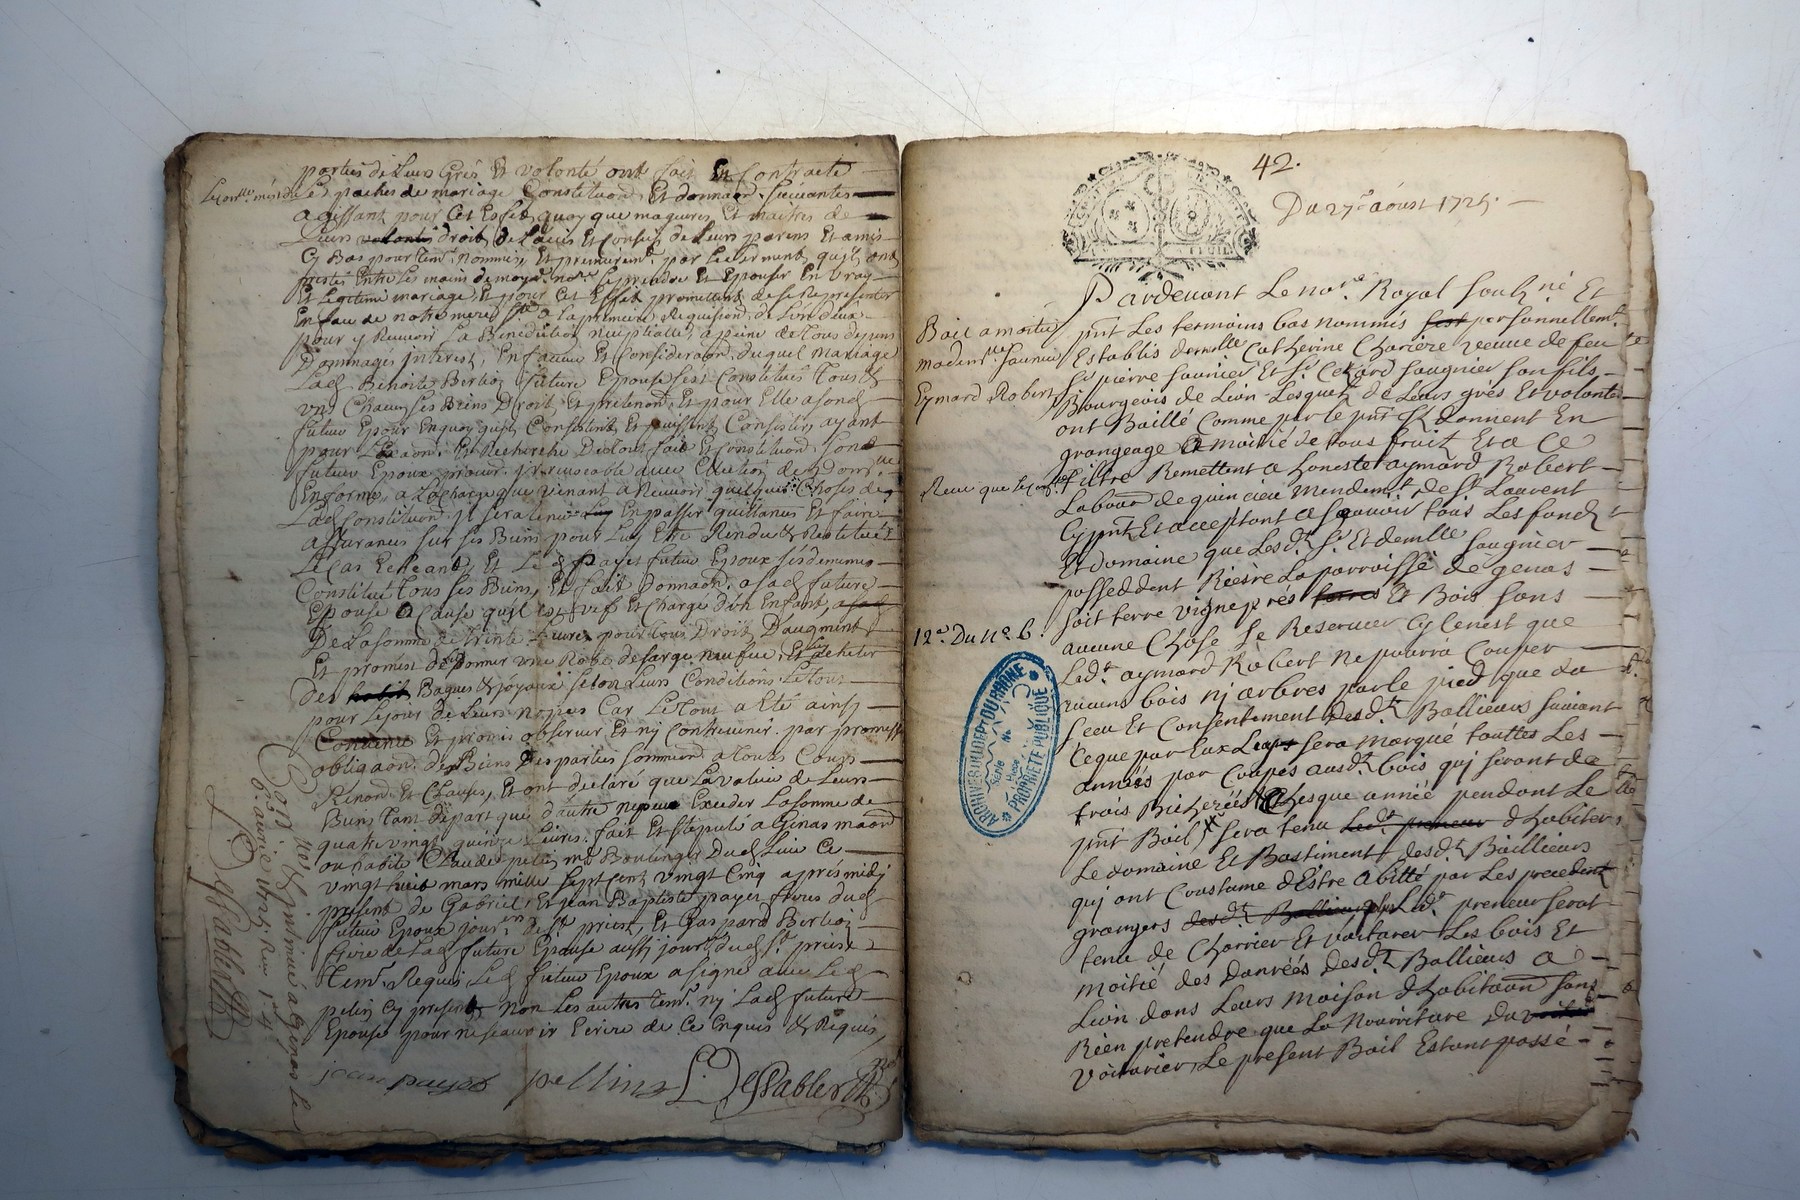 parties de Leurs Grés Et volonté ont fait En Contracte
Les paches de mariage Constituon. Et donnaon. suivantes
agissant pour Cet Effet quoy que majeures Et maitres de
Leurs volontés droits de Lavis Et Conseis de Leurs parens Et amis
Cy Bas pour tem. nommes, Et premierem.t par le serment quils ont
prestés Entre Les mains de moy d. no.re se prendre Et Epouser En vray
Et Legitime mariage, Et pour Cet Effet promettent de se Representer
En face de notre mere S.te a la premiere Requision. de Lun deux
pour y Recevoir La Benediction nuptialle, a peine de tous depens
Dommages interest, En faveur Et Consideraon. duquel mariage
Lad. Benoite Berlioz future Epouse sest Constituée Tous &
uns Chacuns ses Biens Droits Et pretenons. Et pour Elle a sond.
futur Epoux En quoy quils Consistent Et puissent Consister, ayant
pour Et Recherche Dicelout fait Et Constituon. sond.
futur Epoux procur. irrevocable avec Election de dom.
En forme, a La Charge que venant a Recevoir quelques Choses de
Lad. Constituon. il sera tenu Luy En passer quittances Et faire
assurances sur ses Biens pour Luy Etre Rendu & Restitués
Le Cas Echeant, Et Led. payet futur Epoux sesdememes
Constitue Tous ses Biens, Et fait Donnaon. a sad. future
Epouse a Cause quil est veuf Et Chargé dun Enfant, a sad.
De La somme de trente Livres pour tous Droits D'augment
Et promest de donner une Robe de sarge neufve, Et dacheter
des habits Bagues & joyaux selon Leurs Conditions Le tout
pour Lejour de Leurs nopces Car Le Tout a Eté ainsy
Convenu Et promis observer Et ny Contrevenir par promesse
obligaon. de Biens Des parties soumiond. a toutes Cours
Renond. Et Clauses, Et ont declaré que La valeur de Leurs
Biens tant dEpart que d'autre ne peut Exceder La somme de
quatre vingt quinze Livres. fait Et stipulé a Genas maon.
ou habite Claude pelin m.e Boulanger Dud. Lieu Ce
vingt huit mars mille sept Cent vingt Cinq après midy
present de Gabriel Et jean Baptiste payet freres dud.
futur Epoux jour. de St. priest, Et Gaspard Berlioz
frere de Lad. future Epouse aussy jour.r dud. St. priest
Tem. Requis Led. futur Epoux a signé avec Led.
pelin Cy present non Les autres tem. ny Lad. future
Epouse pour ne scavoir Ecrire de Ce Enquis & Requis,
jean payet pellin
Con.ll. & insinué a Genas le
6.e avril 1725
42.
Du 27.e aóust 1725.
Pardevant Le no.re Royal soub.né Et
Bail a moitié
madem.lle saunier
Eymard Robert
pnt Les temoins bas nommés personnellem.t
Establis demelle Catherine Chariere veuve de feu
Sr pierre saunier Et Sr. Cezard saugnier son fils
Bourgeois de Lion Lesquels de Leurs grés Et volontés
ont Baillé Comme par le pnt ils donnent En
grangeage a moitié de tous fruits Et a Ce
tiltre Remettent a honeste aymard Robert
Labour. de quincieu mendem.t de St. Laurent
Cy pnt Et acceptant a scavoir tous Les fonds
Et Domaine que Lesd.t Sr. Et demelle saugnier
posseddent Rièsre La parroisse de genas
soit terre vigne prés terres Et Bois sans
12.e Du N.o 6.
aucune Chose se Reserver Cy Cenest que
Led.t aymard Robert ne pourra Couper
aucuns bois nj arbres par le pied que du
sceu Et Consentement desd.t Ballieurs suivant
Ceque par Eux sera marqué touttes Les
années par Coupes ausd.t bois quj seront de
trais Chesque année pendent Le
pnt Bail, sera tenu Led.t preneur d habiter
Le domaine Et Bastiment desd.t Baillieurs
quj ont Coustume d'Estre abitté par Les precedent
grangers desd.t Ballieurs Led.t preneur serat
tenu de Charrier Et voiturer Les bois Et
moitié des danrées desd.t Ballieurs a
Lion dans Leurs maison d habitaon sans
Rien pretendre que La Nourriture du
voiturier, Le present Bail Estant passé
ARCHIVES DU DEPT DU RHONE
Série
N°
Pièce
PROPRIÉTÉ PUBLIQUE